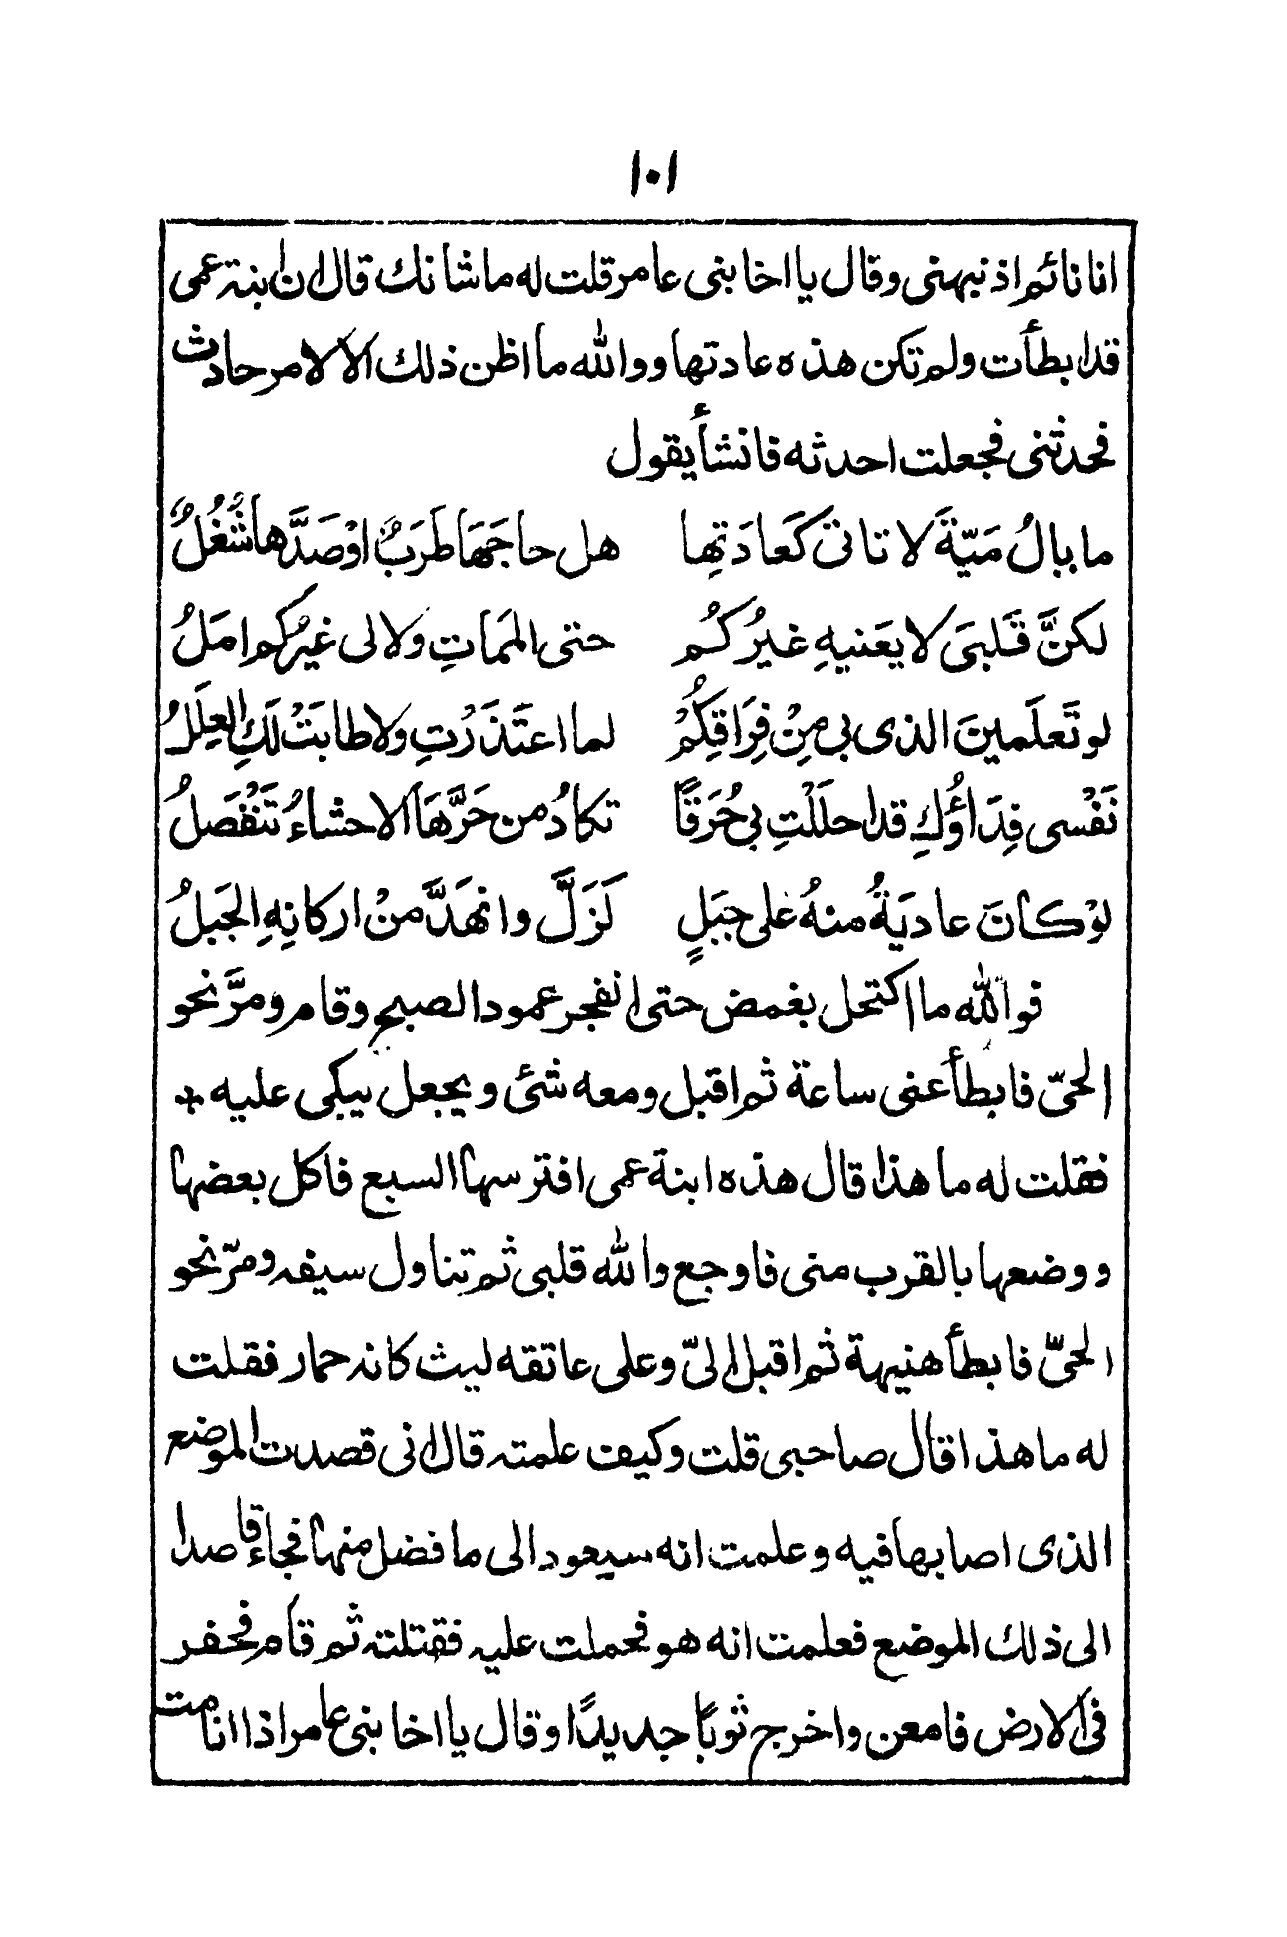 ١٠١
انا نائم اذ نبهنى وقال يا اخا بنى عامر قلت له ما شانك قال ان ابنة عمى
قد ابطأت ولم تكن هذه عادتها ووالله ما اظن ذلك الا لامر حادث
فحدثنى فجعلت احدثه فانشأ يقول
ما بالُ مَيّةَ لا تاتى كَعادَتِها هل حاجَهَا طَرَبٌ اوْصَدَّها شُغُلُ
لكنَّ قَلبىَ لا يعَنيهِ غيرُكُم حتى المَماتِ ولا لى غيرُكم امَلُ
لو تَعلَمينَ الذى بى مِنْ فِرَاقِكُمْ لما اعتَذَرْتِ ولا طابَتْ لَكِ العِلَلُ
نَفْسى فِدَاؤُكِ قد احلَلْتِ بى حُرَقًا تكادُ من حَرَّهَا الاحشاءُ تَنْفَصَلُ
لوْ كانَ عاديَةُ منهُ على جبَلٍ لَزَلَّ وانهَدَّ منْ اركانِهِ الجَبلُ
فوالله ما اكتحل بغمض حتى انفجر عمود الصبح وقام ومرَّ نحو
الحىّ فابطأ عنى ساعة ثم اقبل ومعه شئ ويجعل يبكى عليه *
فقلت له ما هذا قال هذه ابنة عمى افترسها السبع فاكل بعضها
ووضعها بالقرب منى فاوجع والله قلبى ثم تناول سيفه ومرّ نحو
الحىّ فابطأ هنيهة ثم اقبل الىّ وعلى عاتقه ليث كانه حمار فقلت
له ما هذا قال صاحبى قلت وكيف علمته قال انى قصدت الموضع
الذى اصابها فيه وعلمت انه سيعود الى ما فضل منها فجاء قاصدا
الى ذلك الموضع فعلمت انه هو فحملت عليه فقتلته ثم قام فحفر
فى الارض فامعن واخرج ثوبًا جديدًا وقال يا اخا بنى عامر اذا انا مت